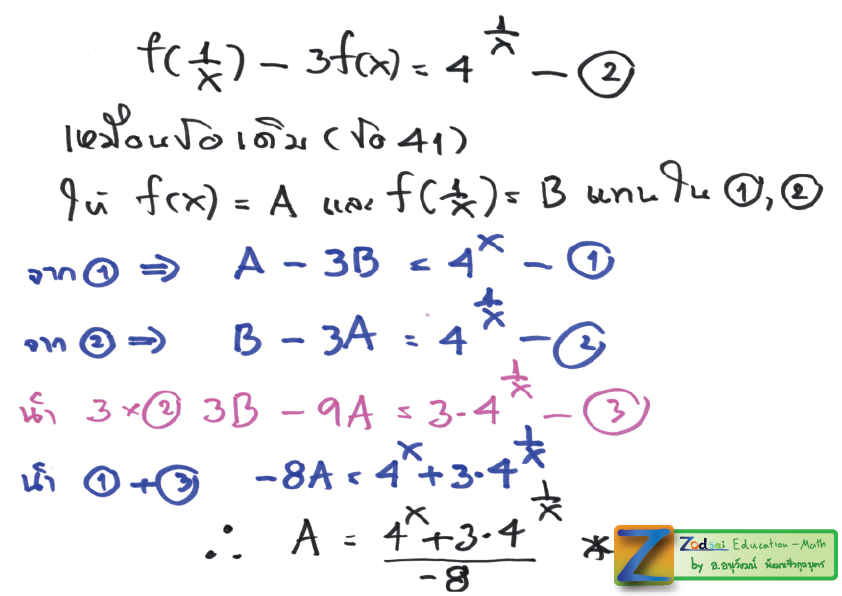 f(1/x) - 3f(x) = 4^(1/x) - ②
เหมือนข้อเดิม (ข้อ 41)
ให้ f(x) = A และ f(1/x) = B แทนใน ①, ②
จาก ① ⇒ A - 3B = 4^x - ①
จาก ② ⇒ B - 3A = 4^(1/x) - ②
นำ 3 × ② 3B - 9A = 3·4^(1/x) - ③
นำ ① + ③ -8A = 4^x + 3·4^(1/x)
∴ A = (4^x + 3·4^(1/x))/(-8) *
Z Zodsai Education - Math
by อ.อนุวัฒน์